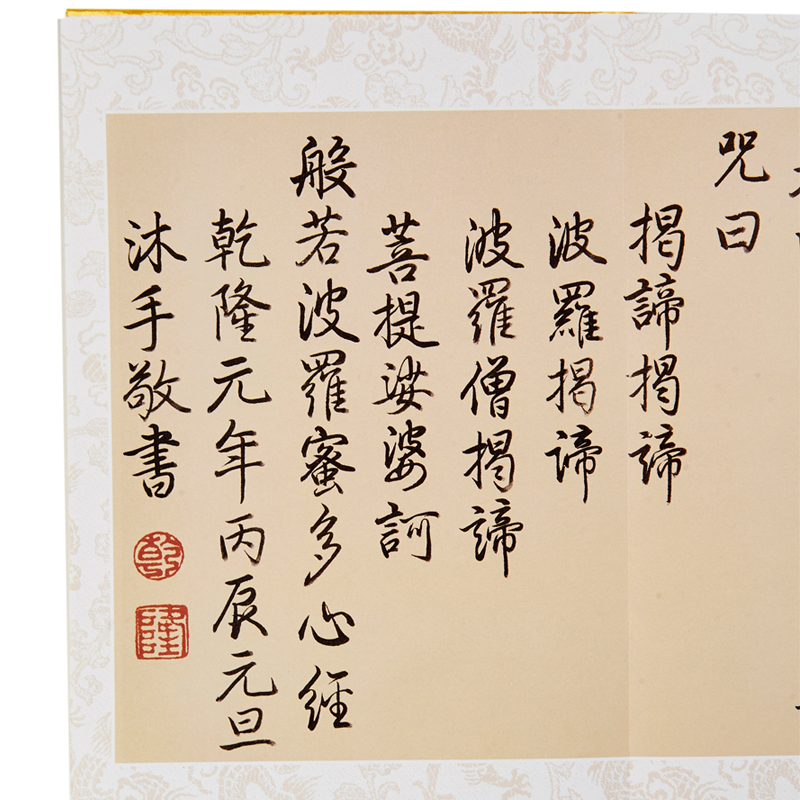 咒曰
揭諦揭諦
波羅揭諦
波羅僧揭諦
菩提娑婆訶
般若波羅蜜多心經
乾隆元年丙辰元旦
沐手敬書
乾
隆